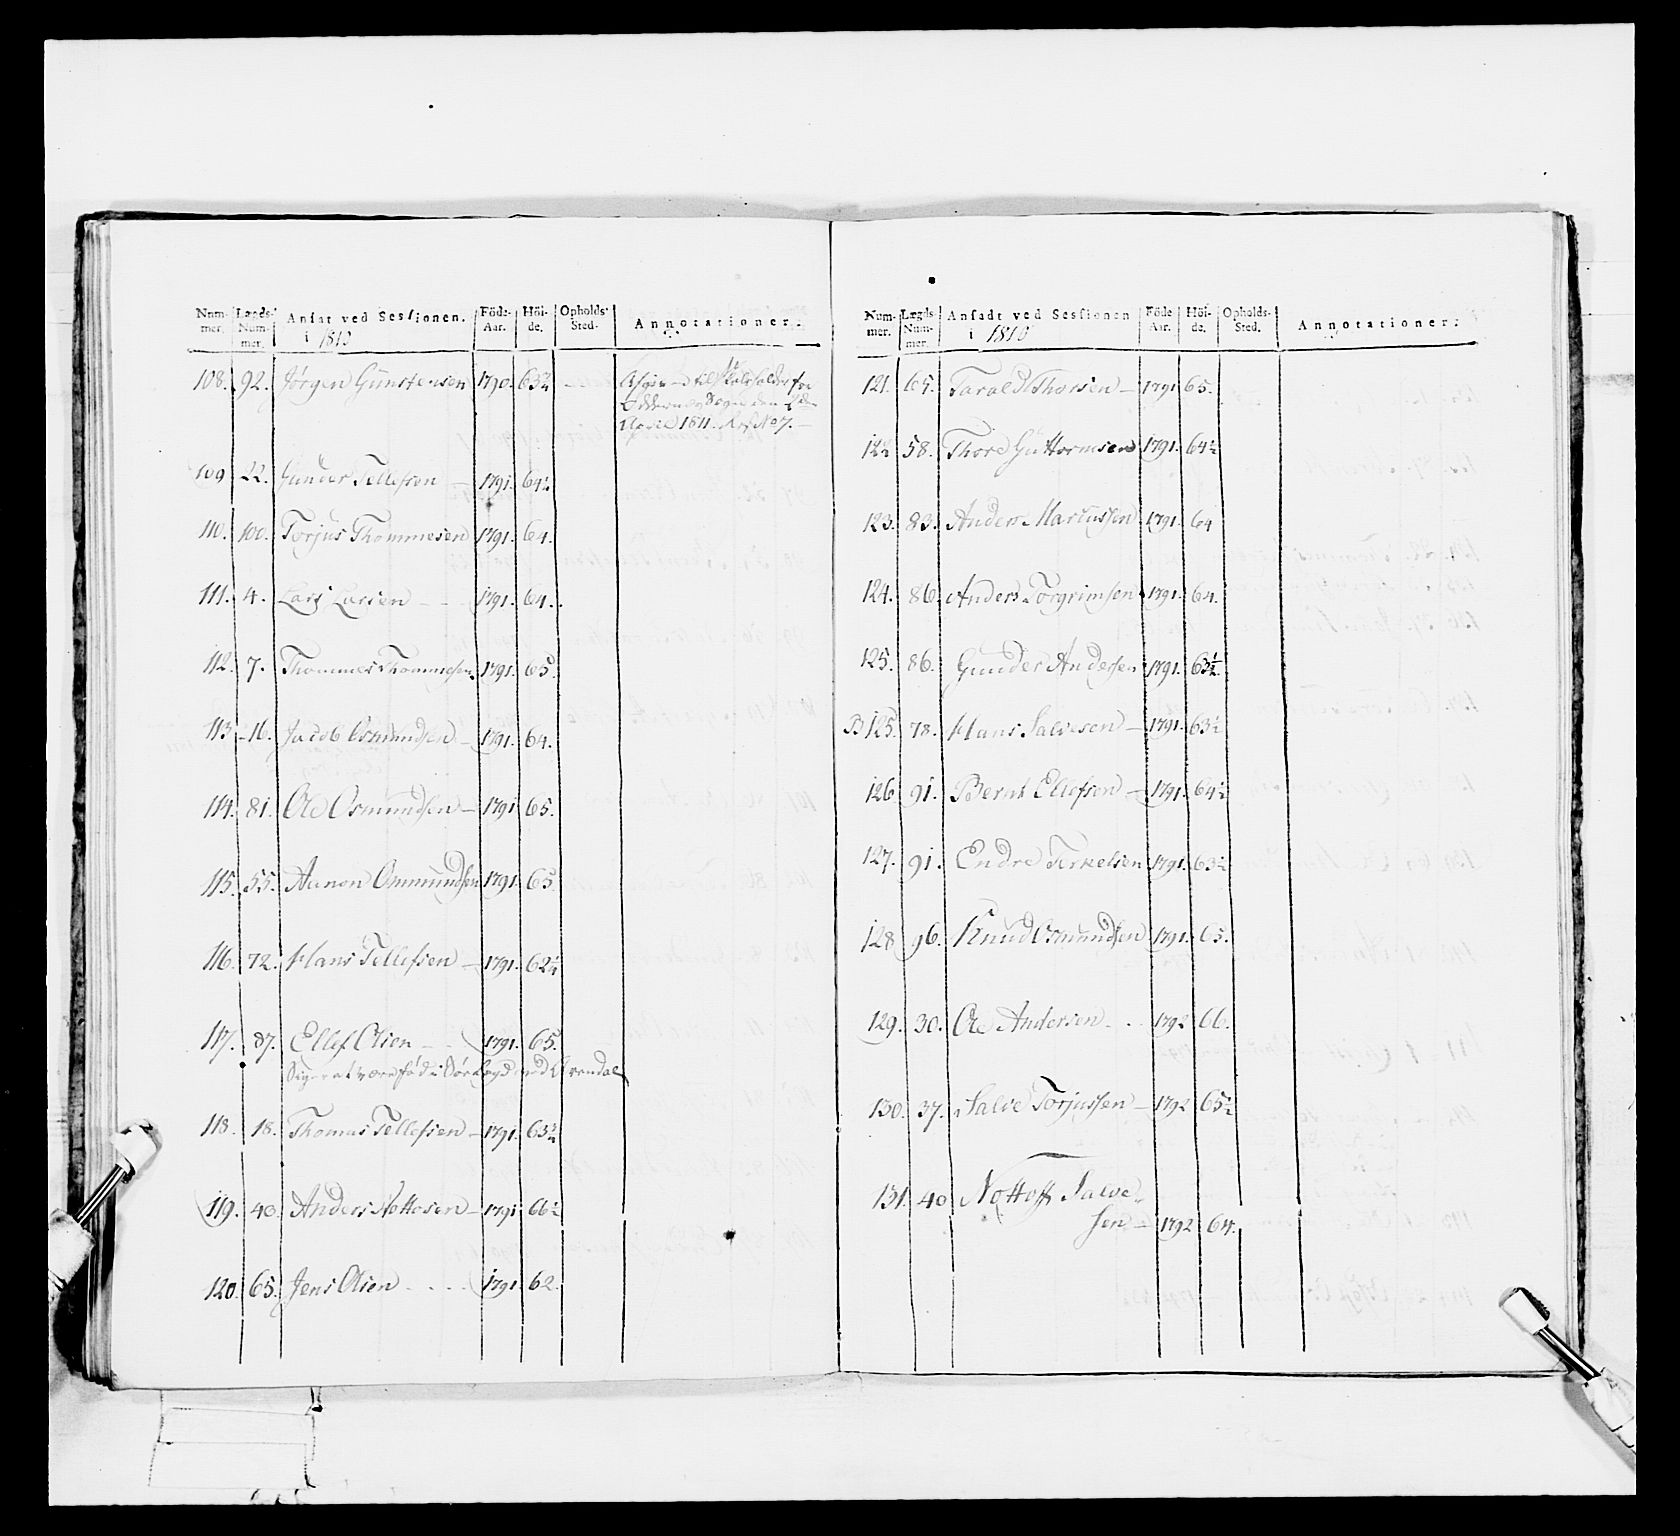 Num-mer. Lægds-Num-mer. Ansat ved Sessionen. i 1810 Föde-Aar. Höi-de. Opholds-Sted. Annotationer.
108. 92. Jörgen Gunstensen 1790. 63 3/4 — til
Sogn den 2den
April 1811. No 7. —
109 22. Gunder Tellefsen — 1791. 64 1/2
110. 100. Torjus Thommesen 1791. 64.
111. 4. Lars Larsen - - 1791. 64.
112. 7. Thommes Thommesen 1791. 65.
113 16. Jacob Osmundsen — 1791. 64.
114. 81. Ole Osmundsen — 1791 65.
115. 55. Aanon Ommundsen 1791. 65.
116. 72. Hans Tellefsen — 1791. 62 1/4
117. 87. Ellef Olsen - - 1791. 65.
Siger at være föd i
118. 18. Thomas Tellefsen — 1791. 63 3/4
119. 40. Anders Nottosen — 1791 66 1/2
120. 65. Jens Olsen - - - - 1791 62.
Num-mer. Lægds-Num-mer. Ansadt ved Sessionen i 1810 Föde Aar. Höi-de. Opholds-Sted. Annotationer:
121. 65. Tarald Thorsen — 1791 65.
122 58. Thore Guttormsen 1791. 64 1/2
123. 83. Anders Marcussen 1791. 64
124. 86. Anders Torgrimsen 1791. 64.
125. 86. Gunder Andersen 1791. 63 1/2.
B 125. 78. Hans Salvesen — 1791. 63 1/2
126 91. Bernt Ellefsen — 1791. 64 1/2
127. 91. Endre Terkelsen 1791. 63 1/2
128 96. Knud Osmundsen 1791. 65.
129. 30. Ole Andersen - - 1792 66.
130. 37. Salve Torjussen — 1792 65 1/2
131. 40 Nottoff Salve-
sen — 1792 64.